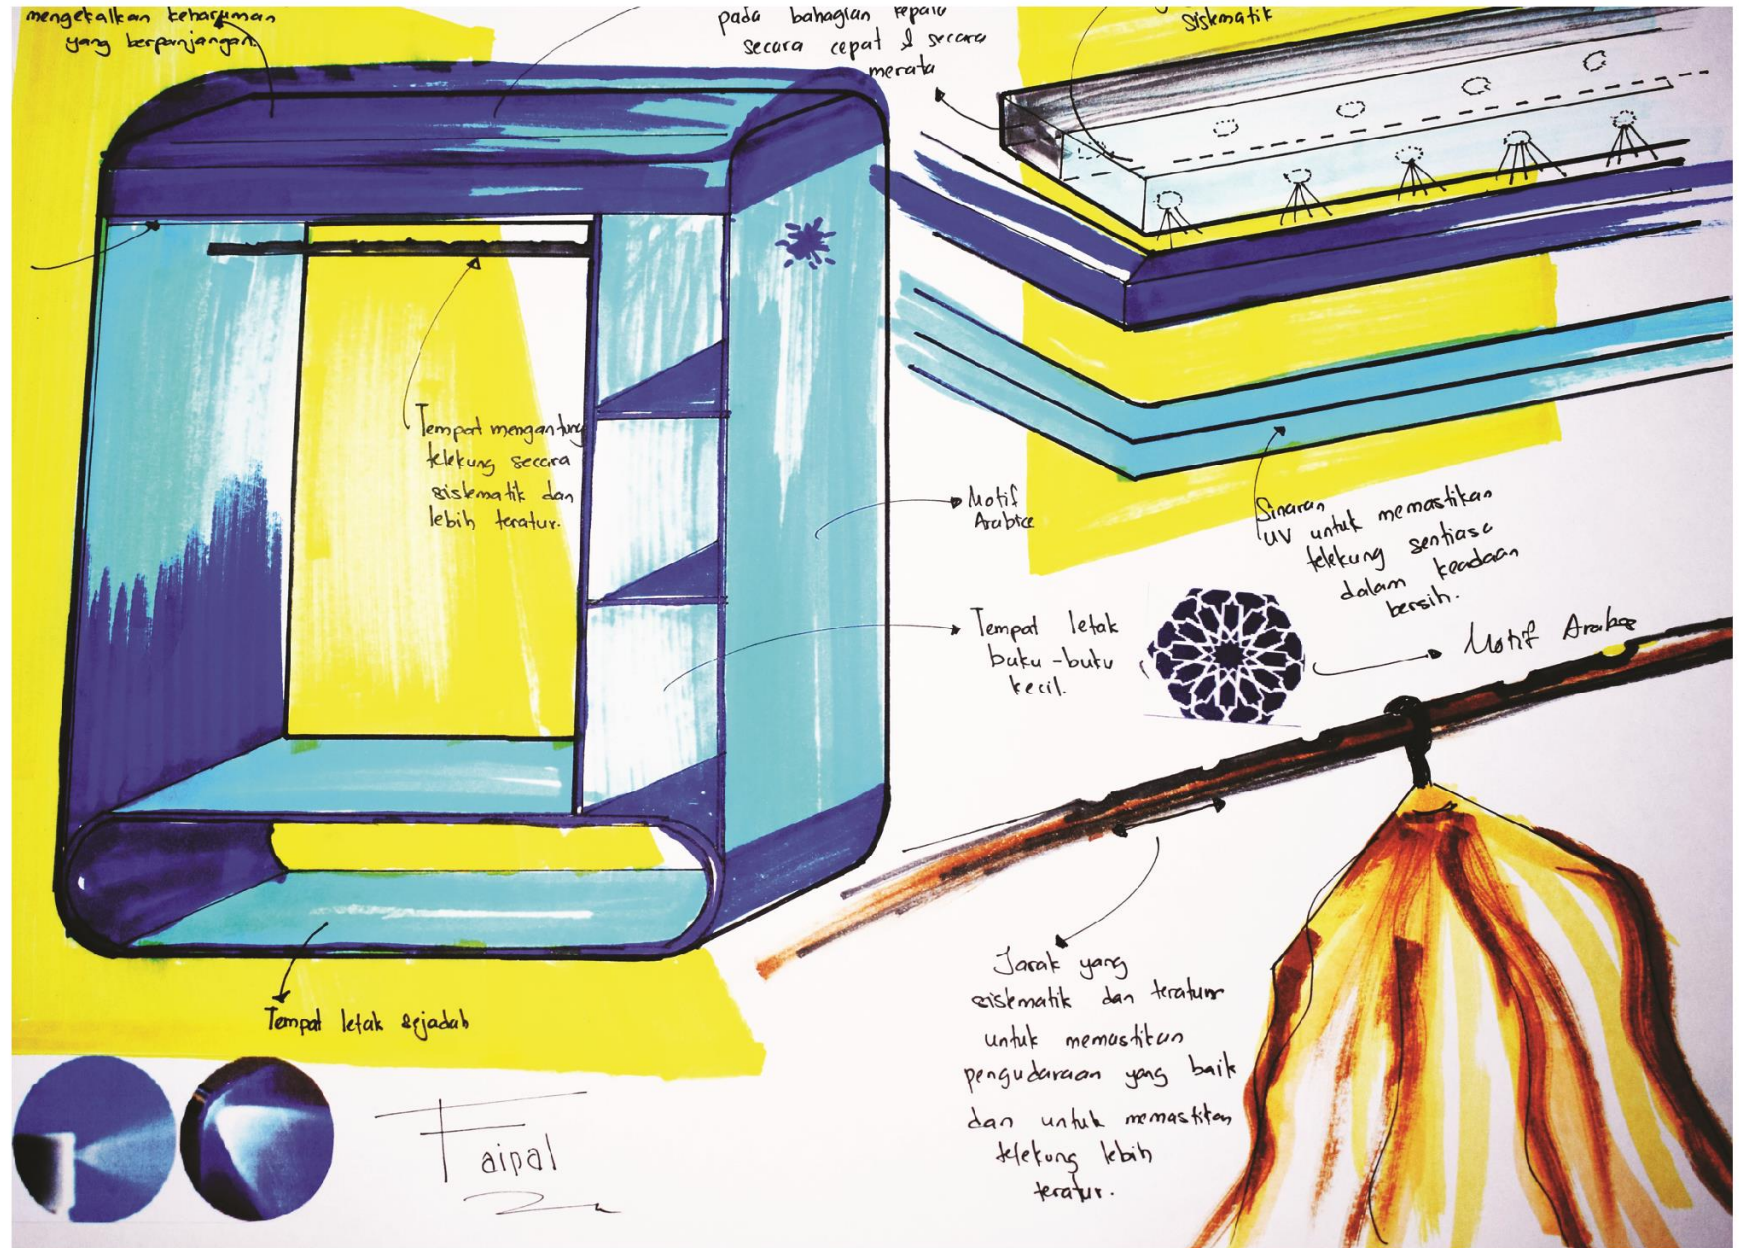 mengekalkan keharuman
yang berpanjangan.
pada bahagian kepala
secara cepat & secara
merata
sistematik
Tempat mengantung
telekung secara
sistematik dan
lebih teratur.
Motif
Arabice
Sinaran
UV untuk memastikan
telekung sentiasa
dalam keadaan
bersih.
Tempat letak
buku-buku
kecil.
Motif
Tempat letak sejadah
Jarak yang
sistematik dan teratur
untuk memastikan
pengudaraan yang baik
dan untuk memastikan
telekung lebih
teratur.